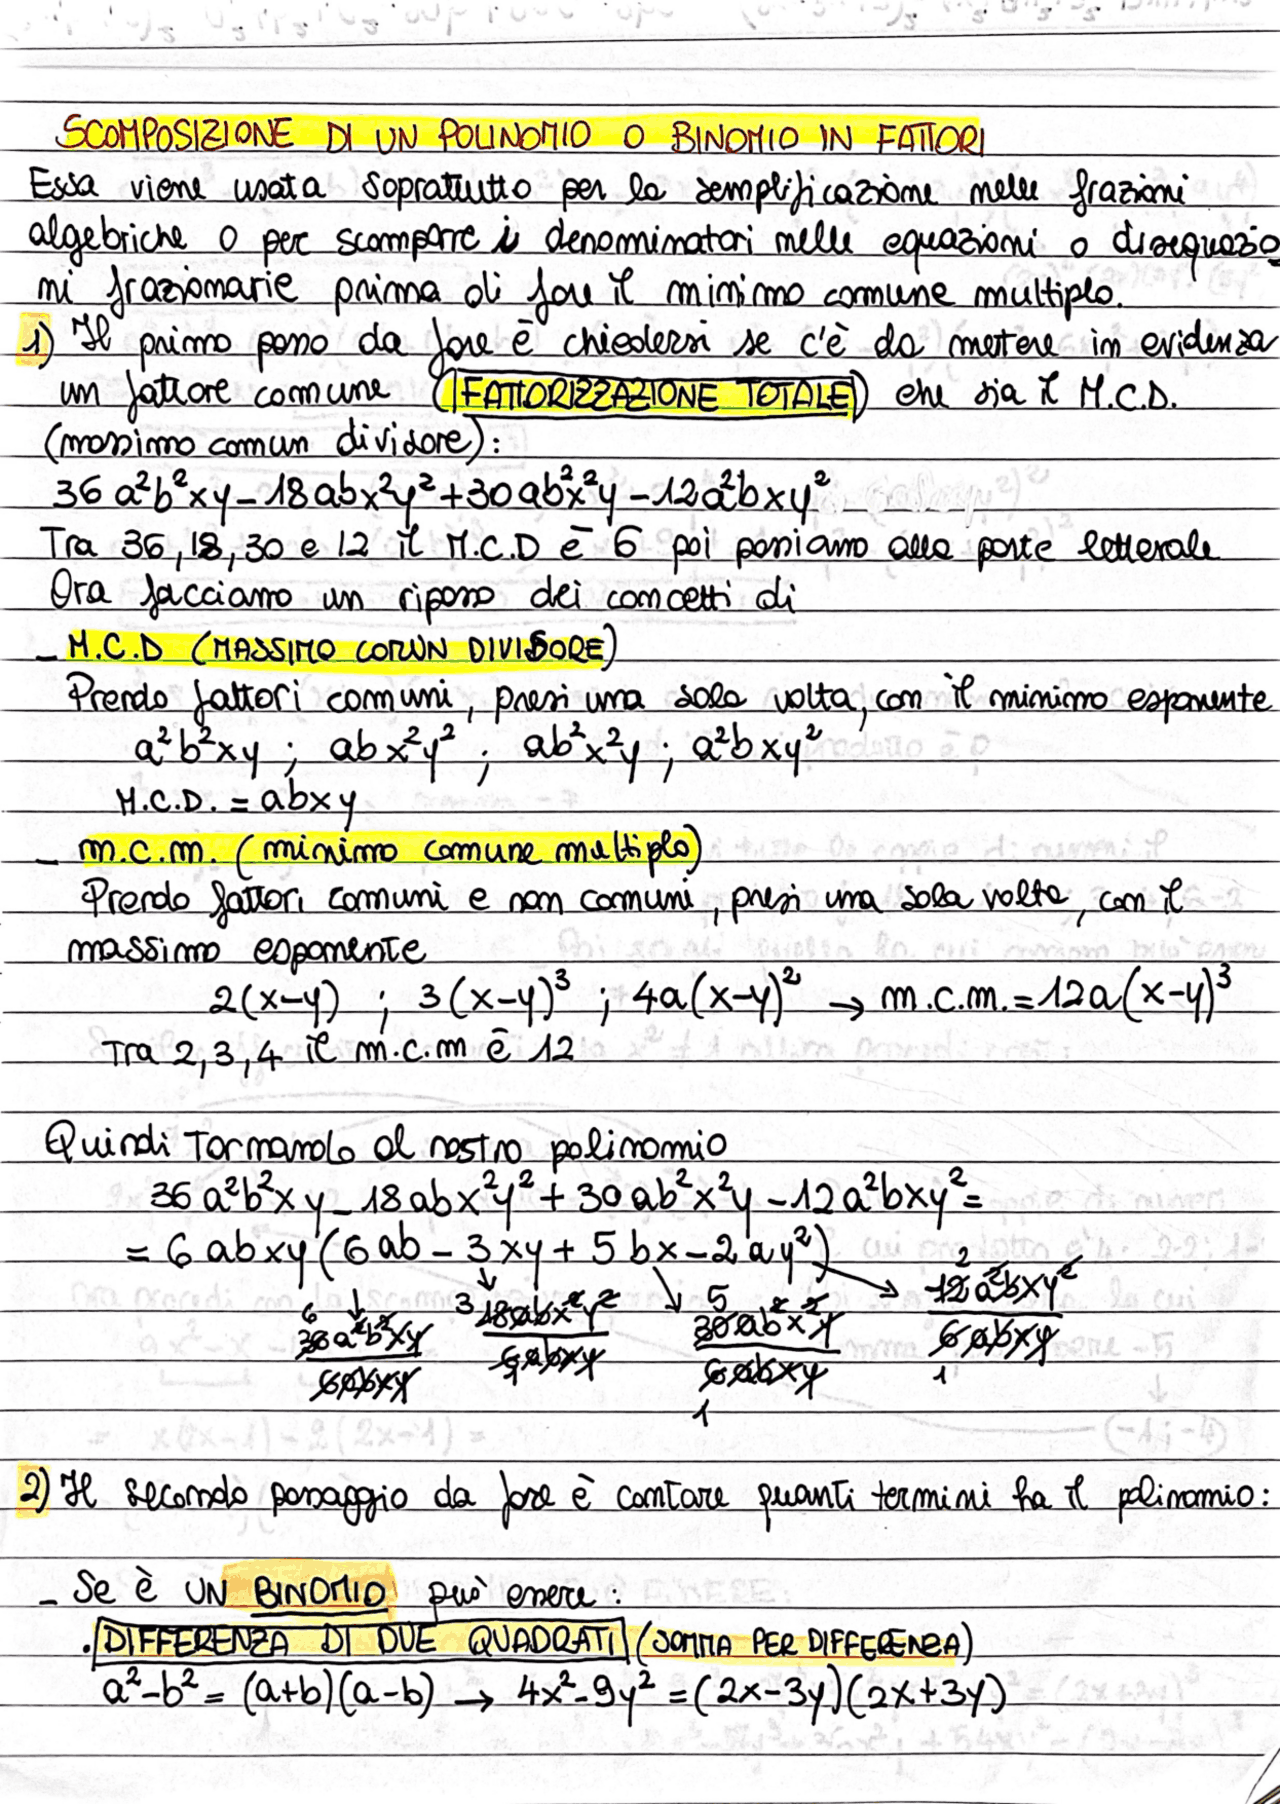 SCOMPOSIZIONE DI UN POLINOMIO O BINOMIO IN FATTORI
Essa viene usata sopratutto per la semplificazione nelle frazioni
algebriche o per scomporre i denominatori nelle equazioni o disequazio
ni frazionarie prima di fare il minimo comune multiplo.
1) Il primo passo da fare è chiedersi se c'è da mettere in evidenza
un fattore comune (FATTORIZZAZIONE TOTALE) che sia il M.C.D.
(massimo comun divisore):
36a²b²xy - 18abx²y² + 30ab²x²y - 12a²bxy²
Tra 36, 18, 30 e 12 il M.C.D è 6 poi passiamo alla parte letterale
Ora facciamo un ripasso dei concetti di
- M.C.D (MASSIMO COMUN DIVISORE)
Prendo fattori comuni, presi una sola volta, con il minimo esponente
a²b²xy ; abx²y² ; ab²x²y ; a²bxy²
M.C.D. = abxy
- m.c.m. (minimo comune multiplo)
Prendo fattori comuni e non comuni, presi una sola volta, con il
massimo esponente
2(x-y) ; 3(x-y)³ ; 4a(x-y)² → m.c.m. = 12a(x-y)³
Tra 2, 3, 4 il m.c.m è 12
Quindi Tornando al nostro polinomio
36a²b²xy - 18abx²y² + 30ab²x²y - 12a²bxy² =
= 6abxy(6ab - 3xy + 5bx - 2ay²)
6 36a²b²xy 3 18abx²y² 5 30ab²x²y 2 12a²bxy²
6abxy 6abxy 6abxy 6abxy
1 1 1
2) Il secondo passaggio da fare è contare quanti termini ha il polinomio:
- Se è UN BINOMIO può essere:
. DIFFERENZA DI DUE QUADRATI (SOMMA PER DIFFERENZA)
a²-b² = (a+b)(a-b) → 4x²-9y² = (2x-3y)(2x+3y)